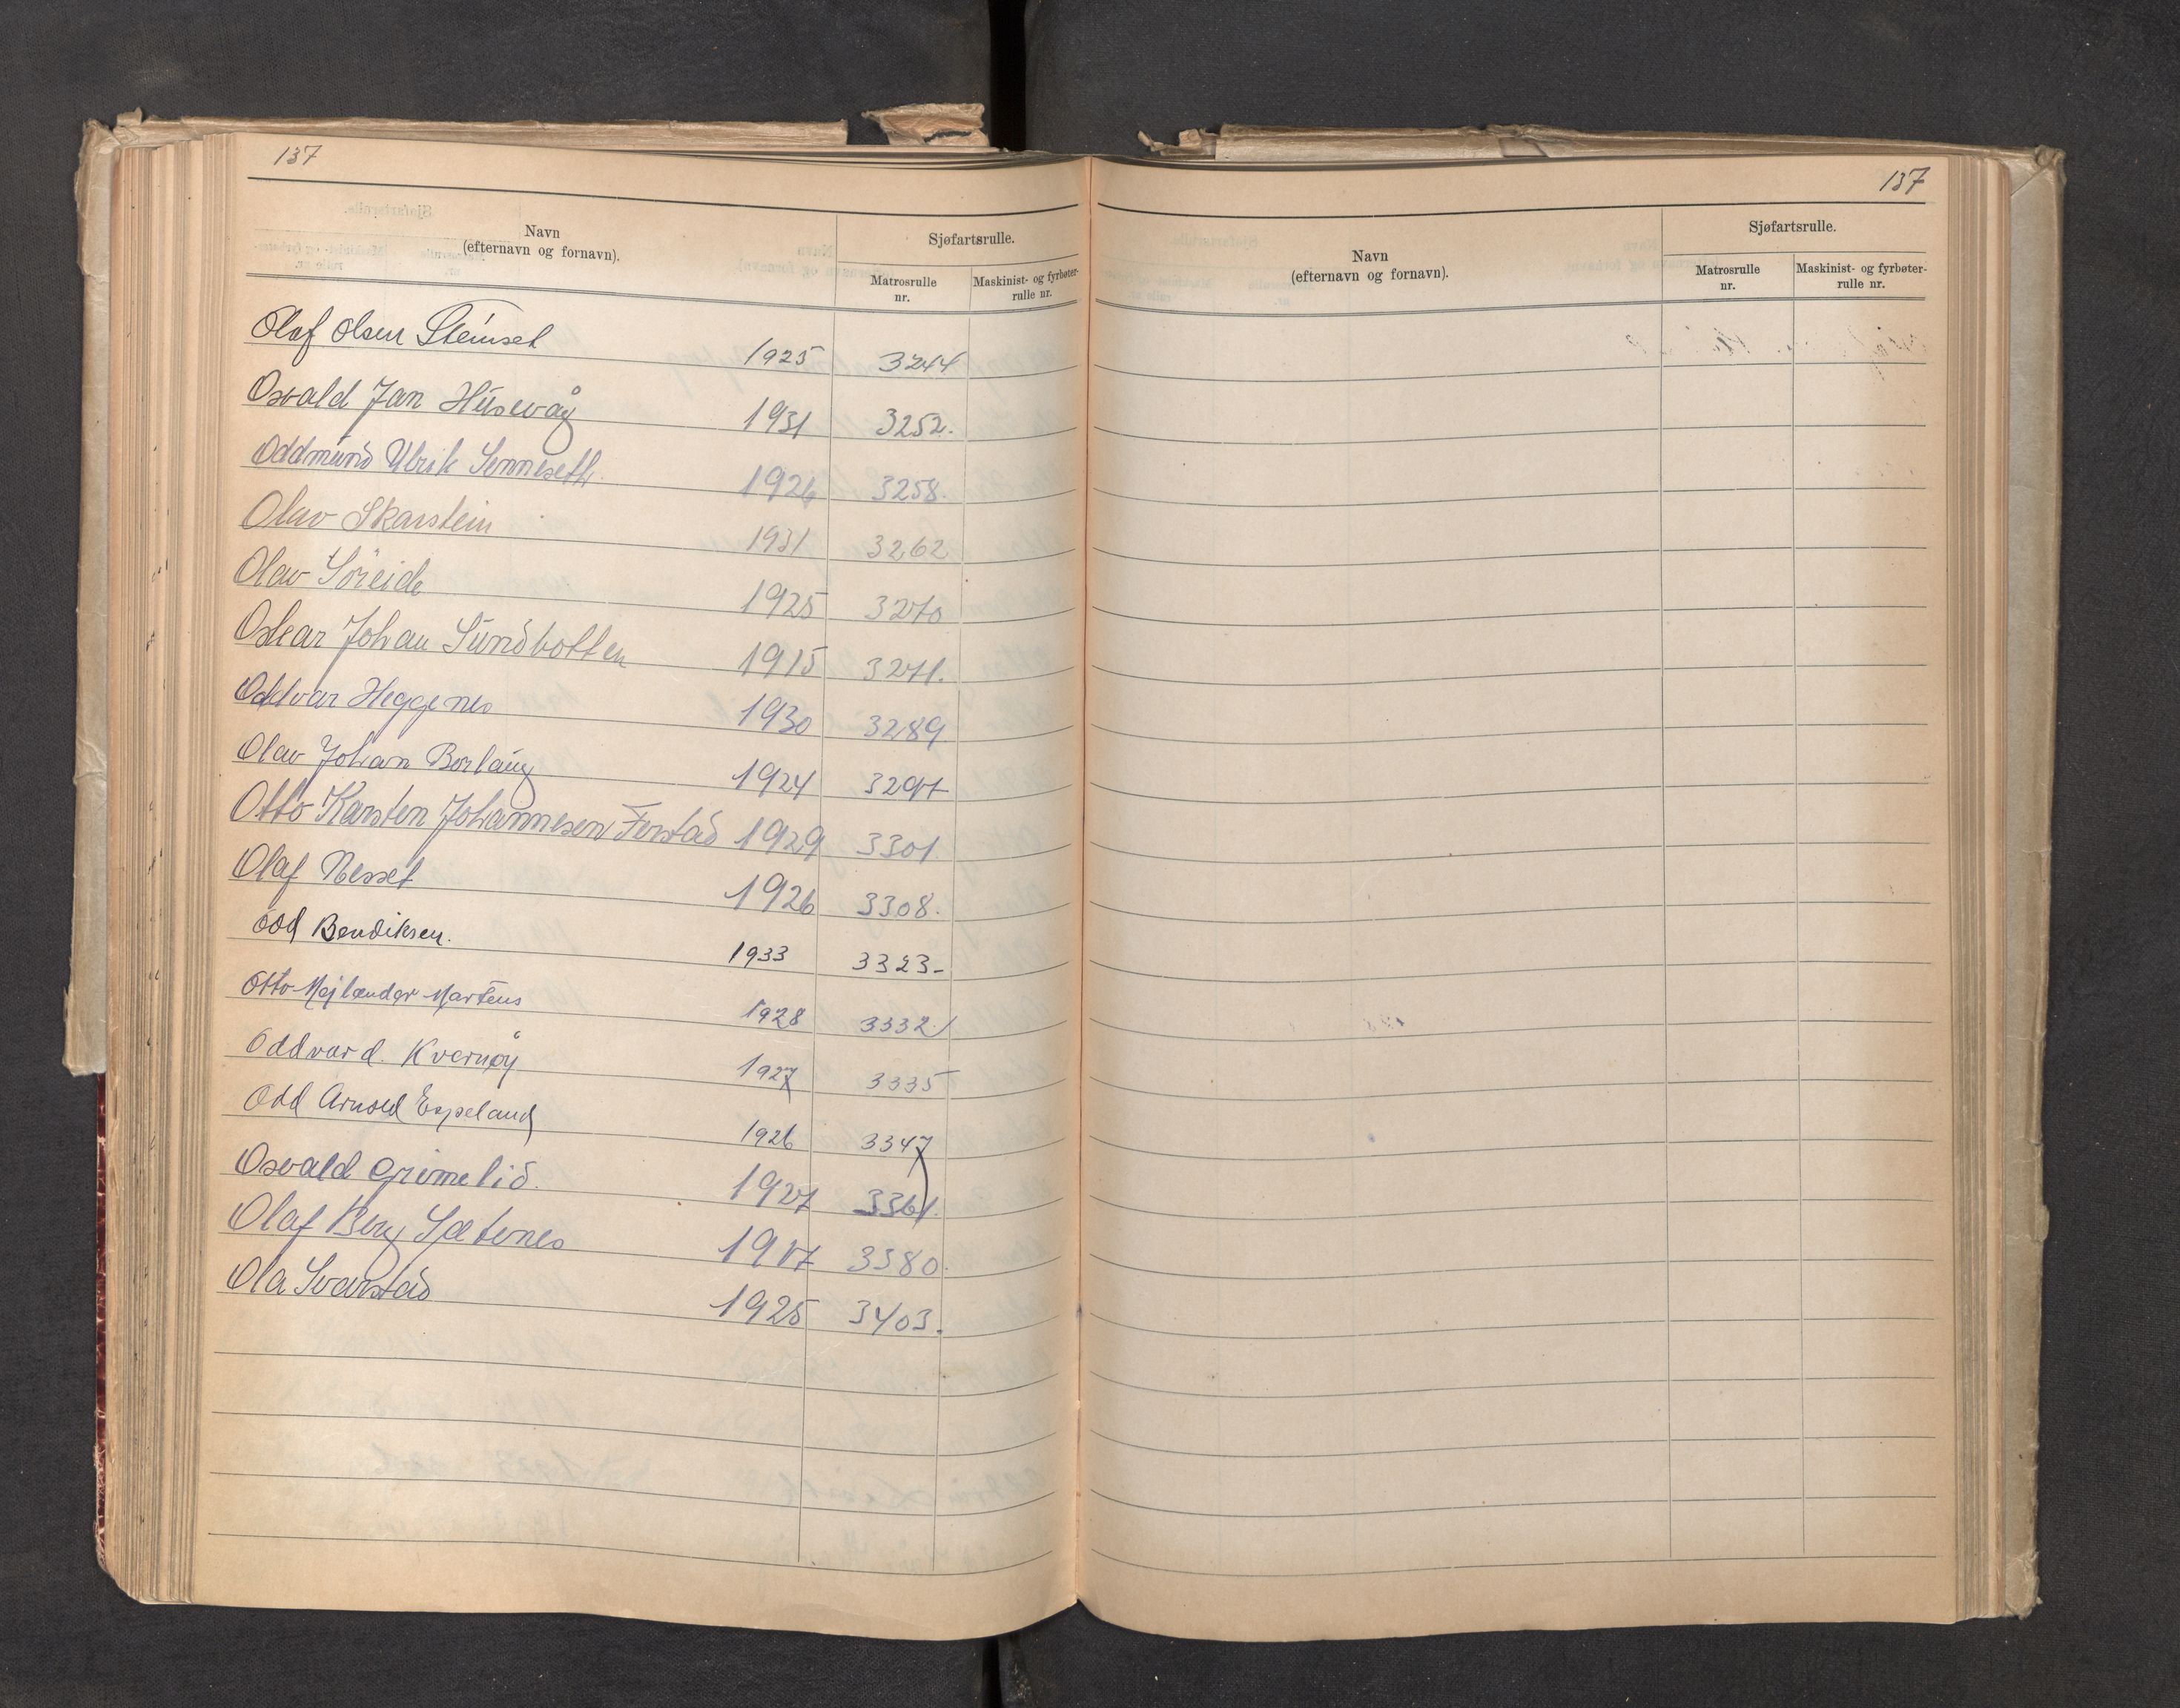 137
Navn
(efternavn og fornavn).
Sjøfartsrulle.
Matrosrulle
nr.
Maskinist- og fyrbøter-
rulle nr.
Olaf Olsen Steinset 1925 3244
Osvald Jan Husevåg 1931 3252.
Oddmund Ulrik Senneseth. 1926 3258.
Olav Skarstein 1931 3262
Olav Söreide 1925 3270
Oskar Johan Sundbotten 1915 3271.
Oddvar Heggenes 1930 3289
Olav Johan Borlaug 1924 3297
Otto Karsten Johannesen Ferstad 1929 3301
Olaf Nesset 1926 3308.
Odd Bendiksen. 1933 3323-
Otto Mejlænder Martens 1928 3332.
Oddvard. Kvernøy 1927 3335
Odd Arnold Espeland 1926 3347
Osvald Grimelid. 1927 3361.
Olaf Berg Sætenes 1917 3380.
Ola Svarstad 1925 3403.
137
Navn
(efternavn og fornavn).
Sjøfartsrulle.
Matrosrulle
nr.
Maskinist- og fyrbøter-
rulle nr.